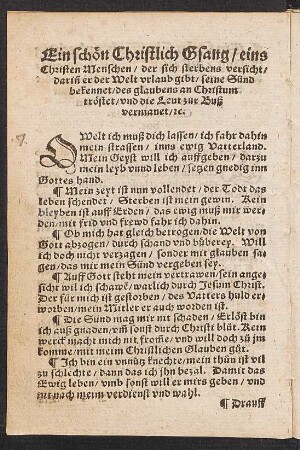 Ein schön Christlich Gsang / eins
Christen Menschen / der sich sterbens versicht /
dariñ er der Welt vrlaub gibt / seine Sünd
bekennet / des glaubens an Christum
tröstet / vnd die Leut zur Buß
vermanet / ꝛc.
O Welt ich muß dich lassen / ich fahr dahin
mein strassen / inns ewig Vatterland.
Mein Geyst will ich auffgeben / darzu
mein leyb vnnd leben / setzen gnedig inn
Gottes hand.
¶ Mein zeyt ist nun vollendet / der Todt das
leben schendet / Sterben ist mein gewin. Kein
bleyben ist auff Erden / das ewig muß mir wer-
den / mit frid vnd frewd fahr ich dahin.
¶ Ob mich hat gleich betrogen / die Welt von
Gott abzogen / durch schand vnd büberey. Will
ich doch nicht verzagen / sonder mit glauben sa-
gen / das mir mein Sünd vergeben sey.
¶ Auff Gott steht mein vertrawen / sein ange-
sicht wil ich schawẽ / warlich durch Jesum Christ.
Der für mich ist gestorben / des Vatters huld er-
worben / mein Mitler er auch worden ist.
¶ Die Sünd mag mir nit schaden / Erlöst bin
ich auß gnaden / vm̃ sonst durch Christ blüt. Kein
werck macht mich nit from̃e / vnd will doch zů jm
kom̃e / mit meim Christlichen Glauben güt.
¶ Ich bin ein vnnütz knechte / mein thůn ist vil
zu schlechte / dann das ich jhn bezal. Damit das
Ewig leben / vmb sonst will er mirs geben / vnd
nit nach meim verdienst vnd wahl.
¶ Drauff